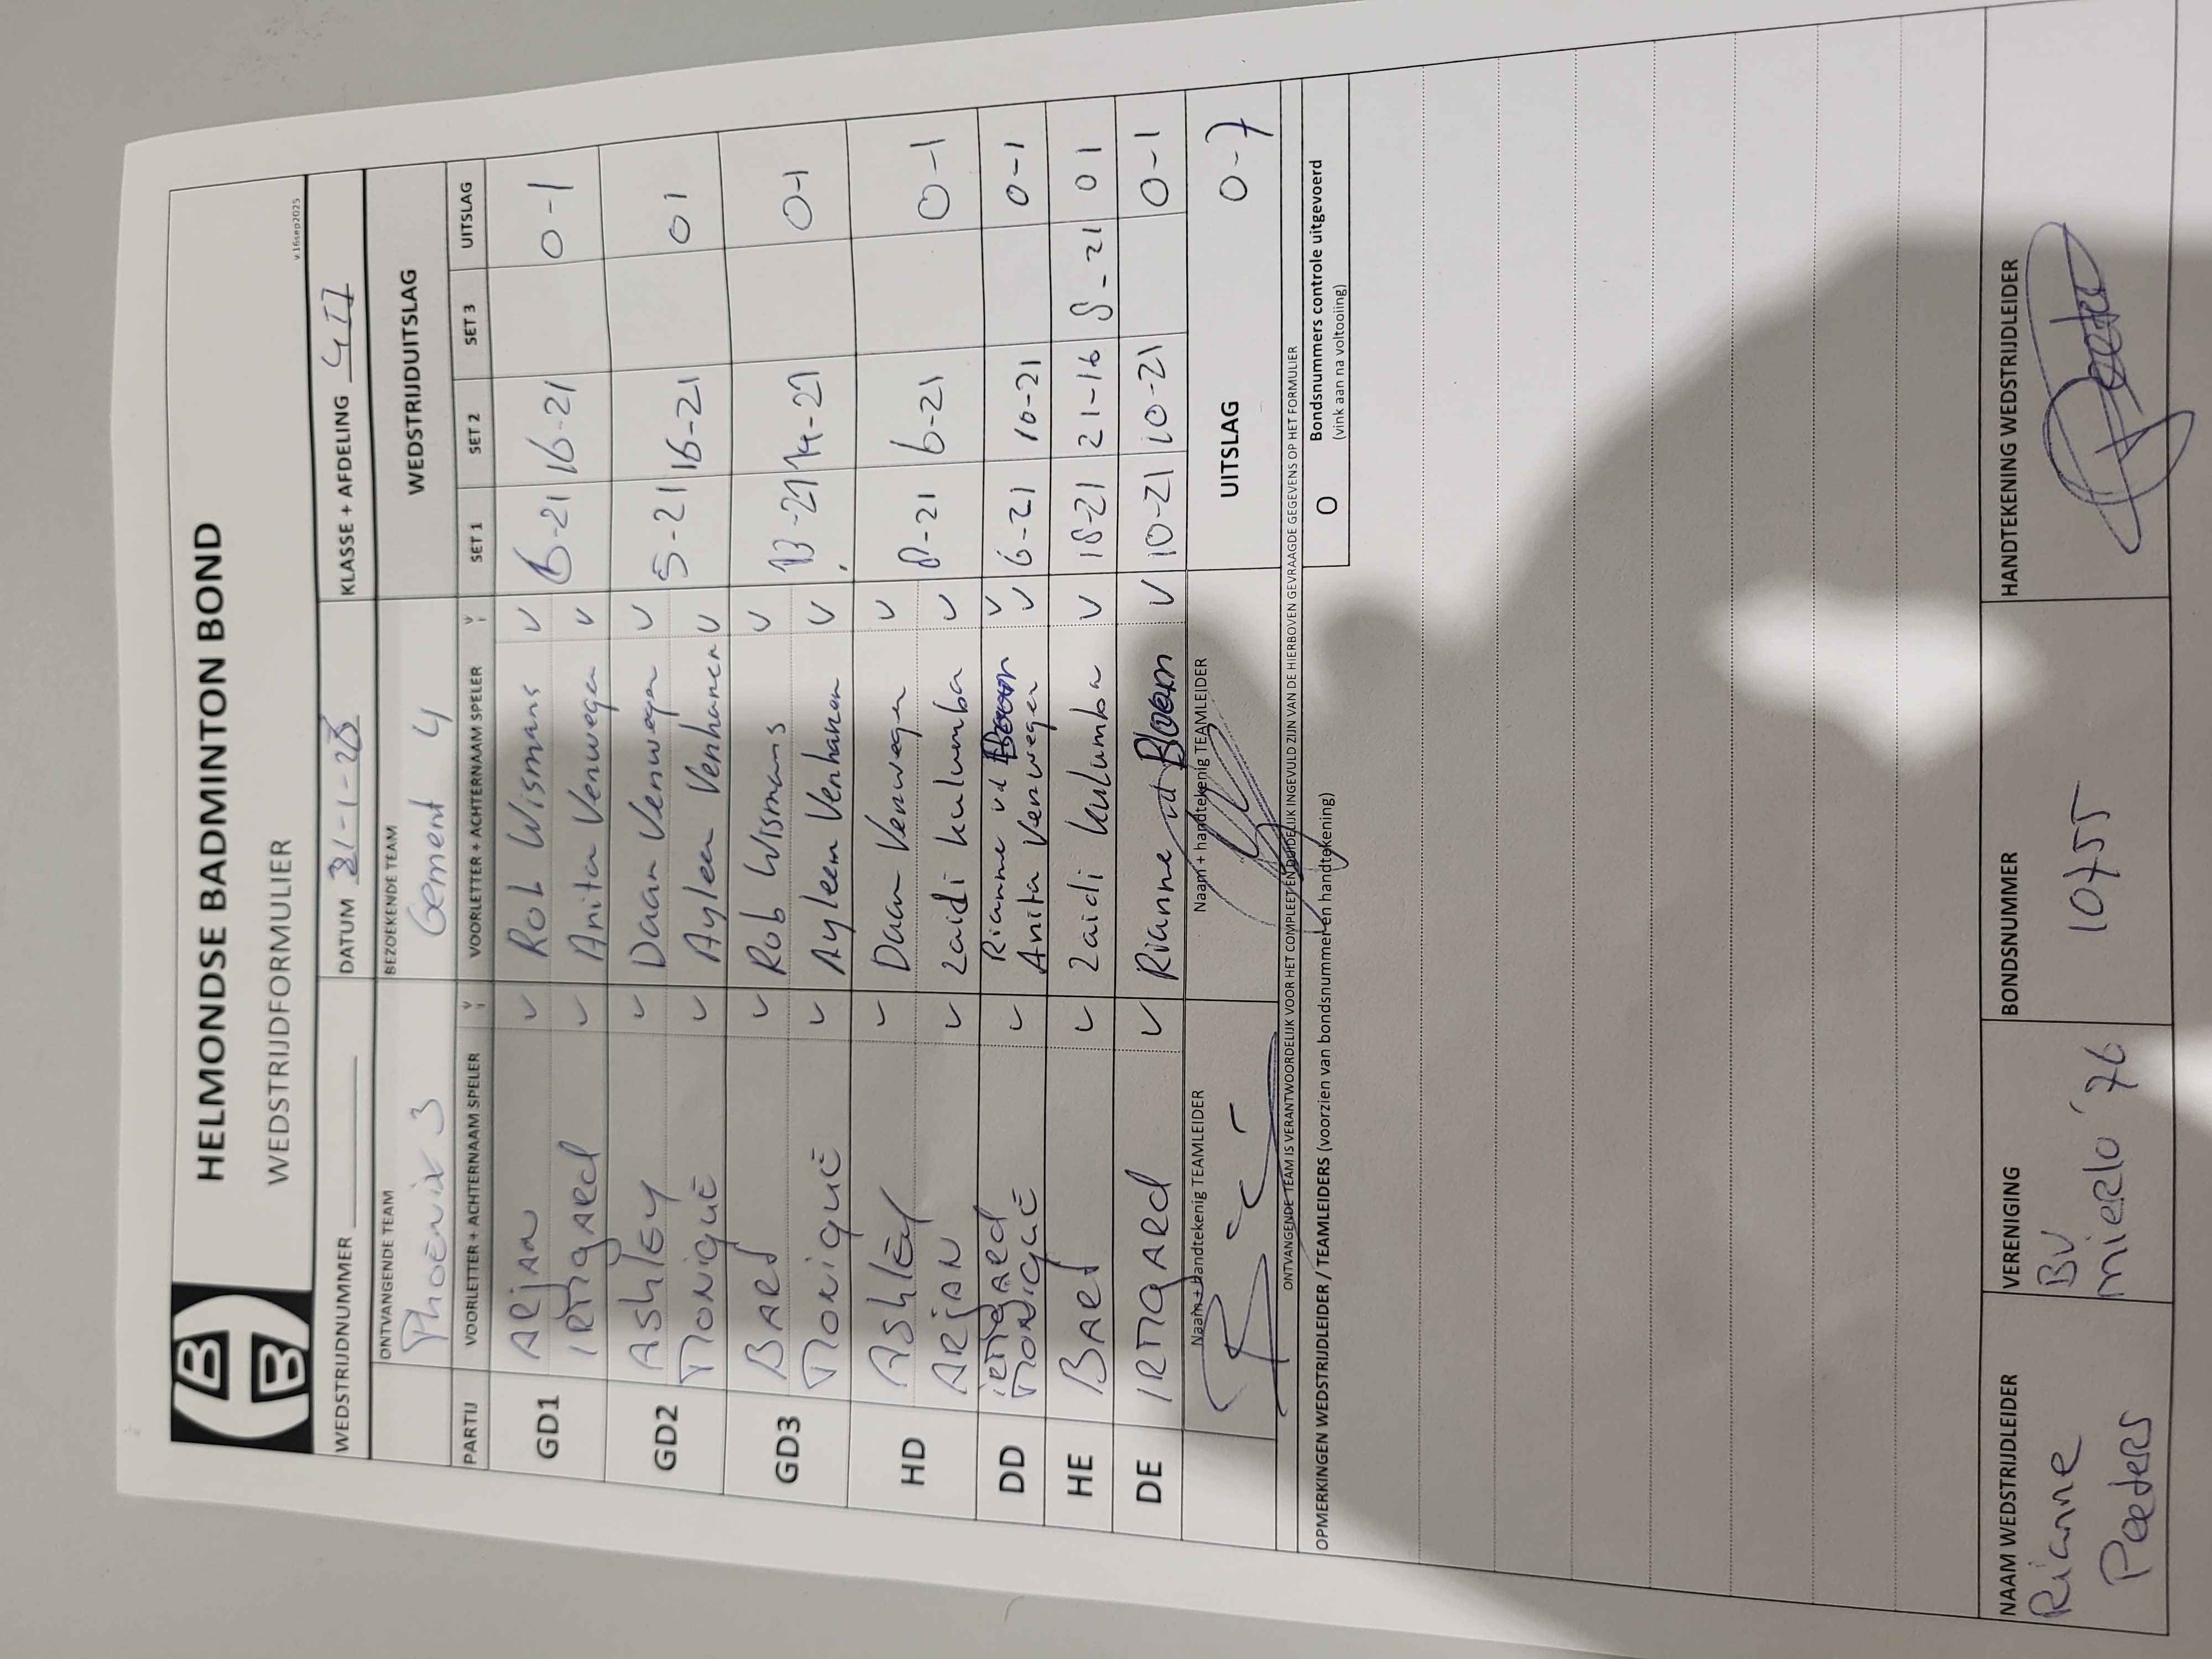 HELMONDSE BADMINTON BOND
WEDSTRIJDFORMULIER
v.16sep2025
WEDSTRIJDNUMMER ________ DATUM 31-1-26 KLASSE + AFDELING 4 II
ONTVANGENDE TEAM BEZOEKENDE TEAM WEDSTRIJDUITSLAG
Phoenix 3 Gement 4
PARTIJ VOORLETTER + ACHTERNAAM SPELER V VOORLETTER + ACHTERNAAM SPELER V SET 1 SET 2 SET 3 UITSLAG
GD1 ARjAN v Rob Wismans v 6-21 16-21 0-1
IRMgARd v Anita Verwegen v
GD2 AShlEy v Daan Verwegen v 5-21 16-21 0 1
MONiquE v Ayleen Venhanen v
GD3 BARt v Rob Wismans v 13-21 14-21 0-1
MONiquE v Ayleen Venhanen v
HD AshlEy v Daan Verwegen v 8-21 6-21 0-1
ARjAN v Zaidi kulumba v
DD iRMgARd v Rianne vd v 6-21 10-21 0-1
MONiquE Anita Verwegen v
HE BARt v Zaidi kulumba v 18-21 21-16 8-21 0 1
DE IRMgARd v Rianne vd Bloem v 10-21 10-21 0-1
Naam + handtekenig TEAMLEIDER Naam + handtekenig TEAMLEIDER UITSLAG 0-7
ONTVANGENDE TEAM IS VERANTWOORDELIJK VOOR HET COMPLEET EN DUIDELIJK INGEVULD ZIJN VAN DE HIERBOVEN GEVRAAGDE GEGEVENS OP HET FORMULIER
OPMERKINGEN WEDSTRIJDLEIDER / TEAMLEIDERS (voorzien van bondsnummer en handtekening)
O Bondsnummers controle uitgevoerd
(vink aan na voltooiing)
NAAM WEDSTRIJDLEIDER VERENIGING BONDSNUMMER HANDTEKENING WEDSTRIJDLEIDER
Rianne BV 10755
Peeters mierlo '76